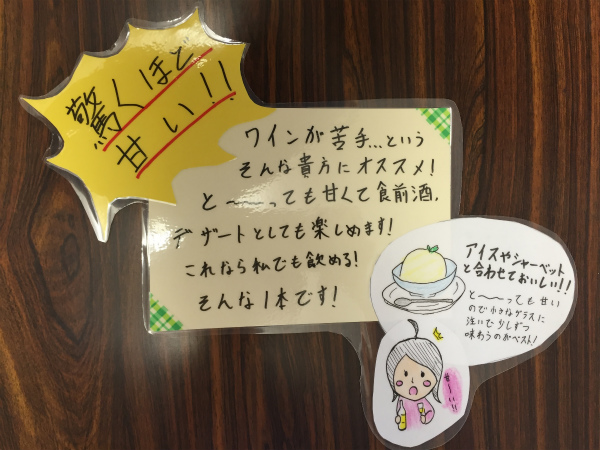 驚くほど
甘い!!
ワインが苦手...という
そんな貴方にオススメ!
と〜〜っても甘くて食前酒.
デザートとしても楽しめます!
これなら私でも飲める!
そんな1本です!
アイスやシャーベット
と合わせておいしい!!
と〜〜っても甘い
ので小さなグラスに
注いで少しずつ
味わうのがベスト!
甘〜い!!